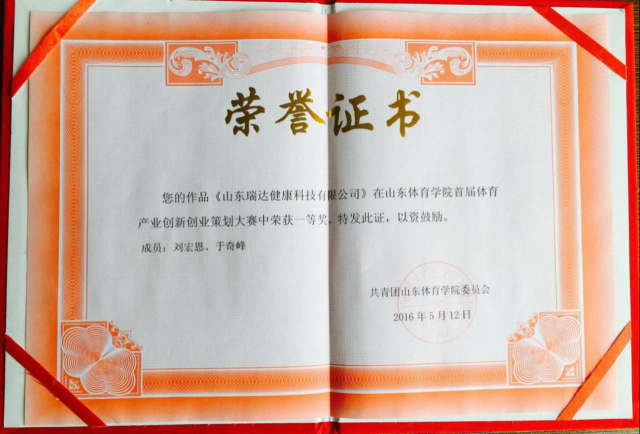 荣誉证书
您的作品《山东瑞达健康科技有限公司》在山东体育学院首届体育
产业创新创业策划大赛中荣获一等奖，特发此证，以资鼓励。
成员：刘宏恩、于奇峰
共青团山东体育学院委员会
2016年5月12日